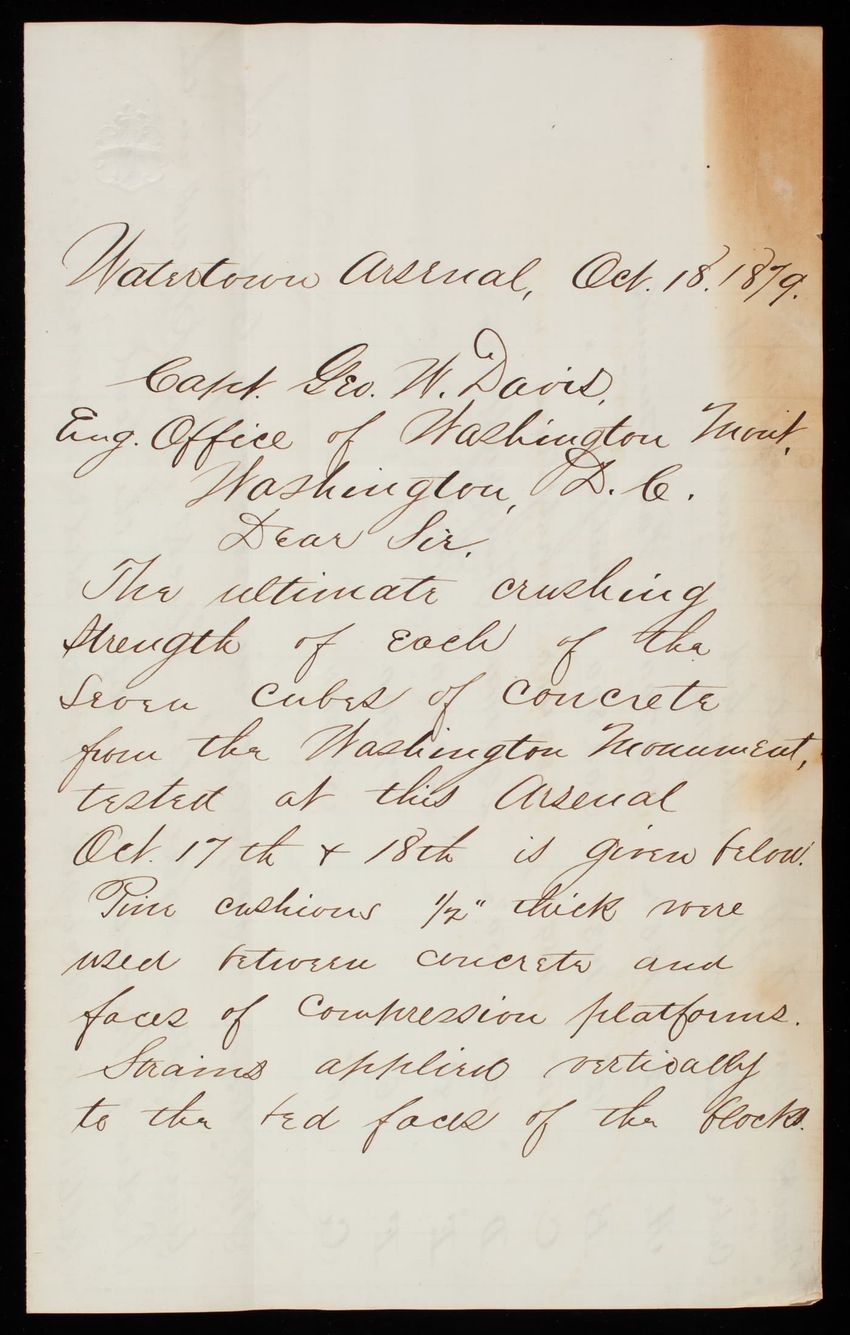 Watertown Arsenal, Oct. 18. 1879.
Capt. Geo. W. Davis,
Eng. Office of Washington Mont,
Washington, D. C.
Dear Sir,
The ultimate crushing
strength of each of the
seven cubes of concrete
from the Washington Monument,
tested at this Arsenal
Oct. 17th & 18th is given below.
Pine cushions 1/2" thick were
used between concrete and
faces of compression platforms.
Strains applied vertically
to the bed faces of the blocks.